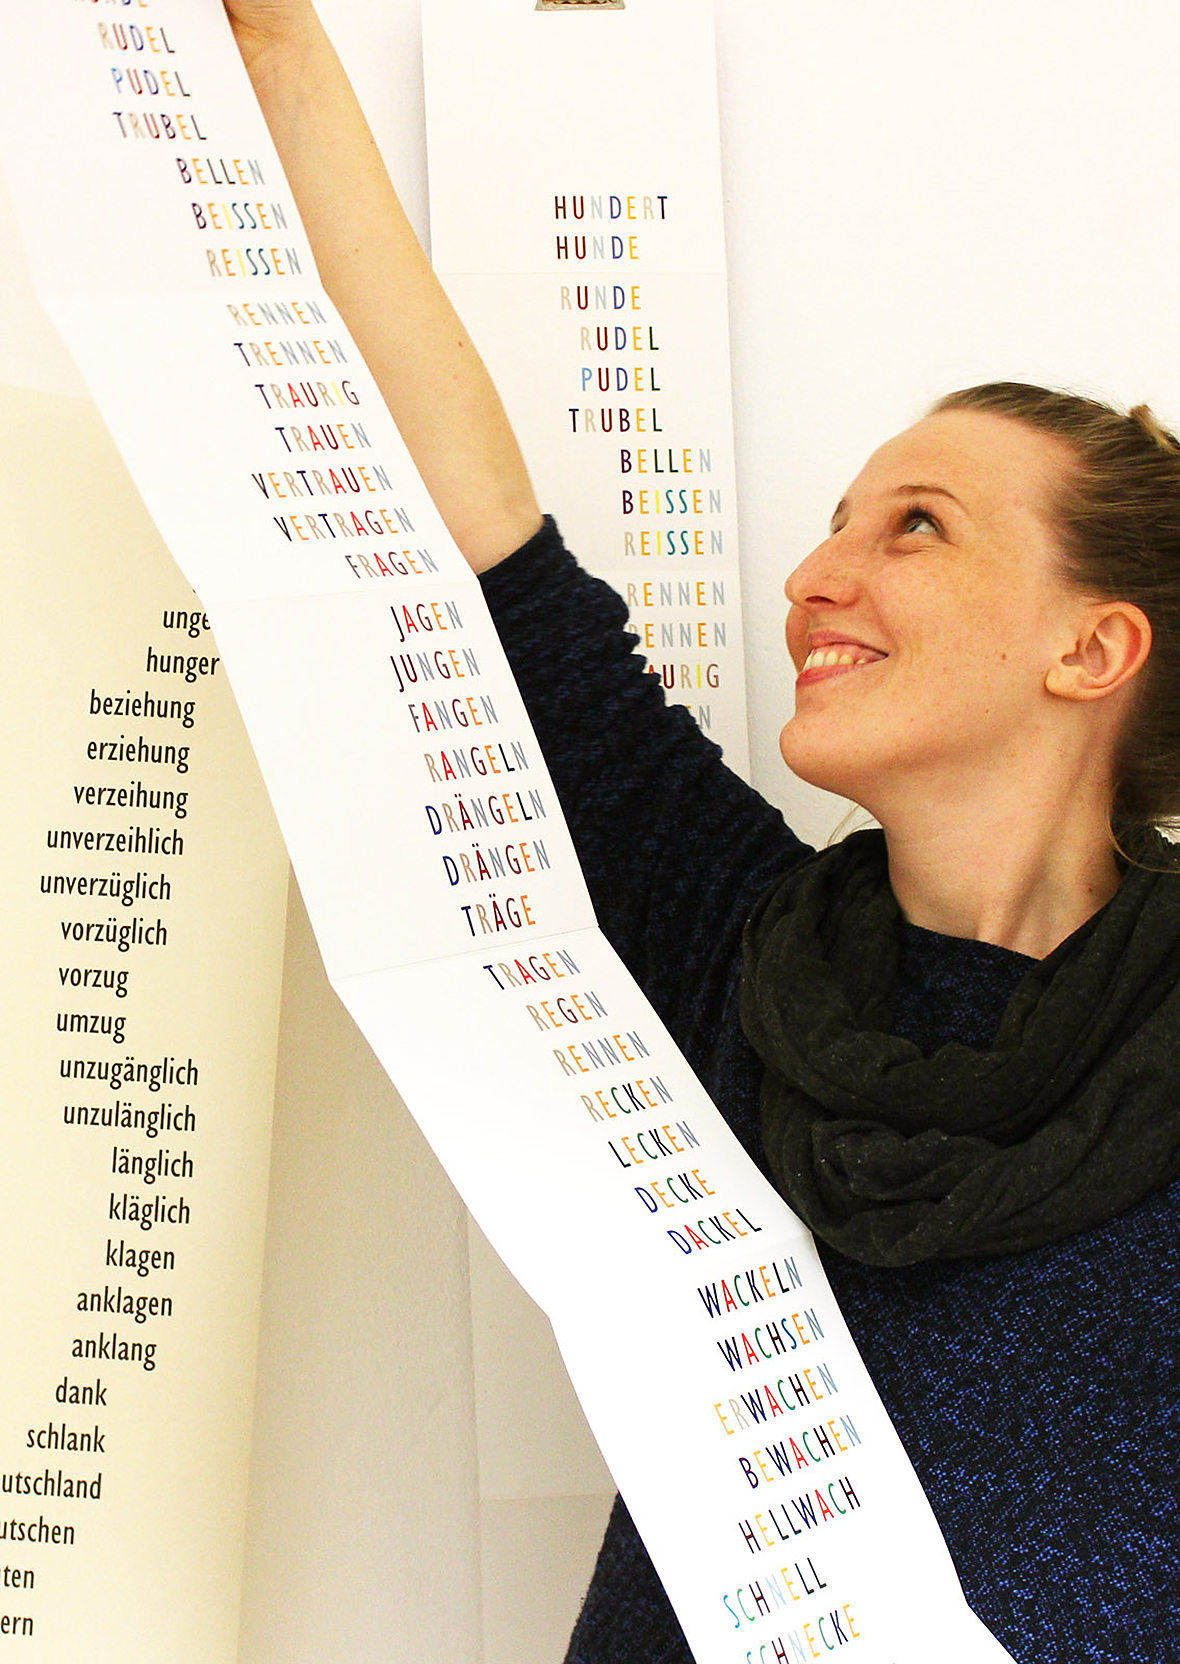 RUDEL
PUDEL
TRUBEL
BELLEN
BEISSEN
REISSEN
RENNEN
TRENNEN
TRAURIG
TRAUEN
VERTRAUEN
VERTRAGEN
FRAGEN
JAGEN
JUNGEN
FANGEN
RANGELN
DRÄNGELN
DRÄNGEN
TRÄGE
TRAGEN
REGEN
RENNEN
RECKEN
LECKEN
DECKE
DACKEL
WACKELN
WACHSEN
ERWACHEN
BEWACHEN
HELLWACH
SCHNELL
SCHNECKE
HUNDERT
HUNDE
RUNDE
RUDEL
PUDEL
TRUBEL
BELLEN
BEISSEN
REISSEN
RENNEN
ENNEN
AURIG
EN
unge
hunger
beziehung
erziehung
verzeihung
unverzeihlich
unverzüglich
vorzüglich
vorzug
umzug
unzugänglich
unzulänglich
länglich
kläglich
klagen
anklagen
anklang
dank
schlank
utschland
utschen
ten
ern